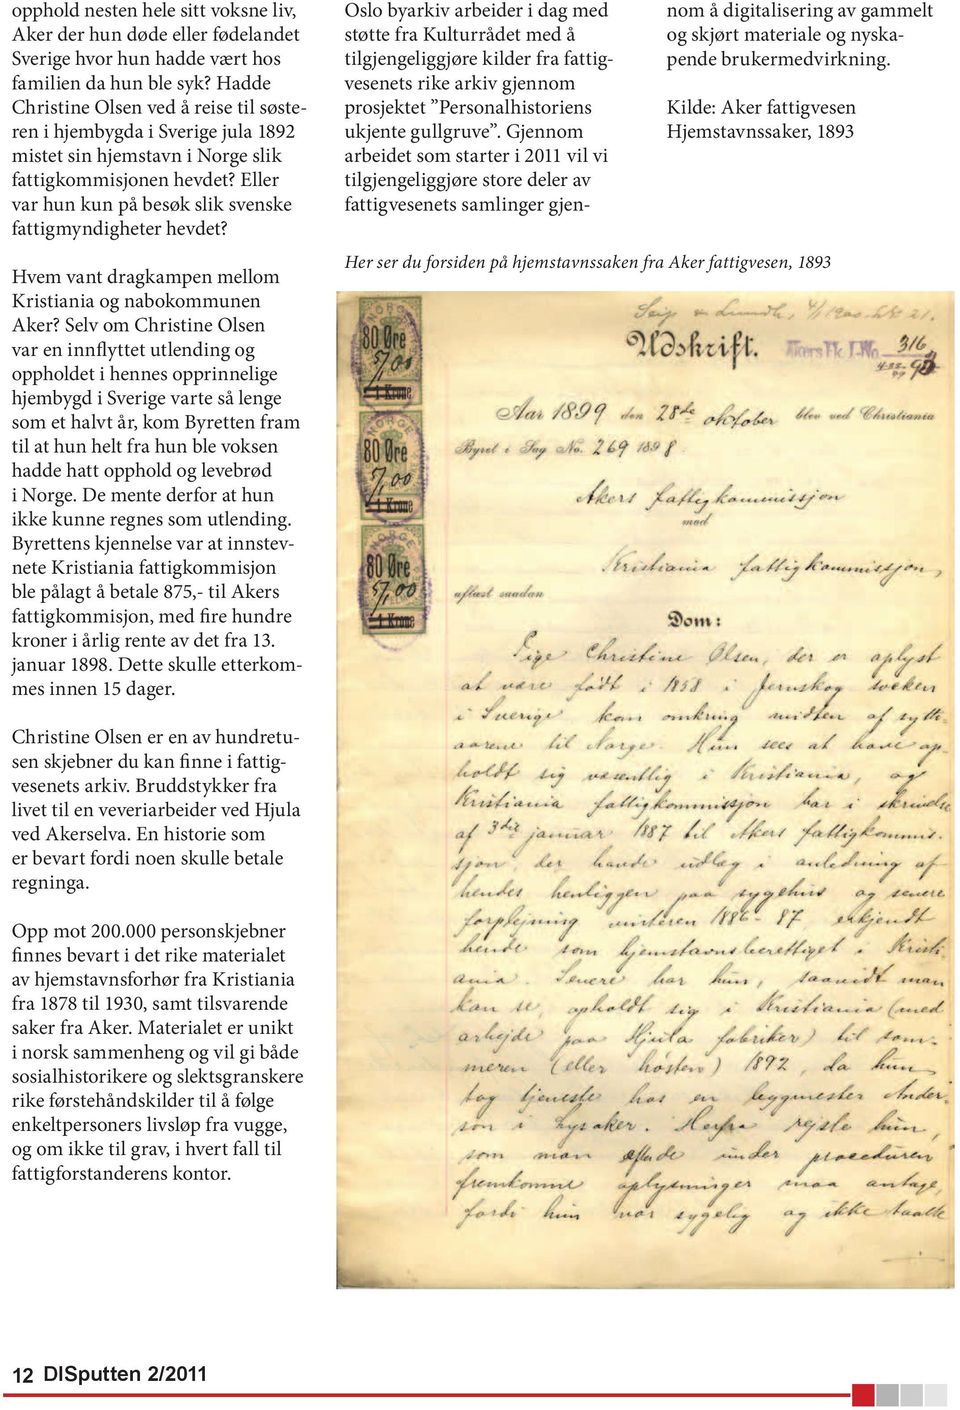 opphold nesten hele sitt voksne liv,
Aker der hun døde eller fødelandet
Sverige hvor hun hadde vært hos
familien da hun ble syk? Hadde
Christine Olsen ved å reise til søste-
ren i hjembygda i Sverige jula 1892
mistet sin hjemstavn i Norge slik
fattigkommisjonen hevdet? Eller
var hun kun på besøk slik svenske
fattigmyndigheter hevdet?
Hvem vant dragkampen mellom
Kristiania og nabokommunen
Aker? Selv om Christine Olsen
var en innflyttet utlending og
oppholdet i hennes opprinnelige
hjembygd i Sverige varte så lenge
som et halvt år, kom Byretten fram
til at hun helt fra hun ble voksen
hadde hatt opphold og levebrød
i Norge. De mente derfor at hun
ikke kunne regnes som utlending.
Byrettens kjennelse var at innstev-
nete Kristiania fattigkommisjon
ble pålagt å betale 875,- til Akers
fattigkommisjon, med fire hundre
kroner i årlig rente av det fra 13.
januar 1898. Dette skulle etterkom-
mes innen 15 dager.
Christine Olsen er en av hundretu-
sen skjebner du kan finne i fattig-
vesenets arkiv. Bruddstykker fra
livet til en veveriarbeider ved Hjula
ved Akerselva. En historie som
er bevart fordi noen skulle betale
regninga.
Opp mot 200.000 personskjebner
finnes bevart i det rike materialet
av hjemstavnsforhør fra Kristiania
fra 1878 til 1930, samt tilsvarende
saker fra Aker. Materialet er unikt
i norsk sammenheng og vil gi både
sosialhistorikere og slektsgranskere
rike førstehåndskilder til å følge
enkeltpersoners livsløp fra vugge,
og om ikke til grav, i hvert fall til
fattigforstanderens kontor.
Oslo byarkiv arbeider i dag med
støtte fra Kulturrådet med å
tilgjengeliggjøre kilder fra fattig-
vesenets rike arkiv gjennom
prosjektet ”Personalhistoriens
ukjente gullgruve”. Gjennom
arbeidet som starter i 2011 vil vi
tilgjengeliggjøre store deler av
fattigvesenets samlinger gjen-
nom å digitalisering av gammelt
og skjørt materiale og nyska-
pende brukermedvirkning.
Kilde: Aker fattigvesen
Hjemstavnssaker, 1893
Her ser du forsiden på hjemstavnssaken fra Aker fattigvesen, 1893
Udskrift.
Akers Fk. J-No. 316
80 Øre
7,00
1 Krone
80 Øre
7,00
1 Krone
80 Øre
7,00
1 Krone
Aar 1899 den 28de oktober blev ved Christiania
Byret i Sag No. 269 1898.
Akers fattigkommissjon
mod
Kristiania fattigkommissjon,
afsagt saadan
Dom:
Pige Christine Olsen, der er oplyst
at være født i 1858 i Jernskog socken
i Sverige kom omkring midten af sytti-
aarene til Norge. Hun sees at have op-
holdt sig væsentlig i Kristiania, og
Kristiania fattigkommissjon har i skrivelse
af 3die januar 1887 til Akers fattigkommis-
sjon, der havde udlæg i anledning af
hendes henliggen paa sygehus og senere
forplejning vinteren 1886-87, erkjendt
hende som hjemstavnsberettiget i Kristi-
ania. Senere har hun, saavidt man
kan se, opholdt sig i Kristiania (med
arbejde paa Hjula fabriker) til som-
meren (eller høsten) 1892, da hun
tog tjeneste hos en bygmester Ander-
son i Lysaker. Herfra rejste hun,
som man efter de under proceduren
fremkomne oplysninger maa antage,
fordi hun var sygelig og ikke taalte
12 DISputten 2/2011